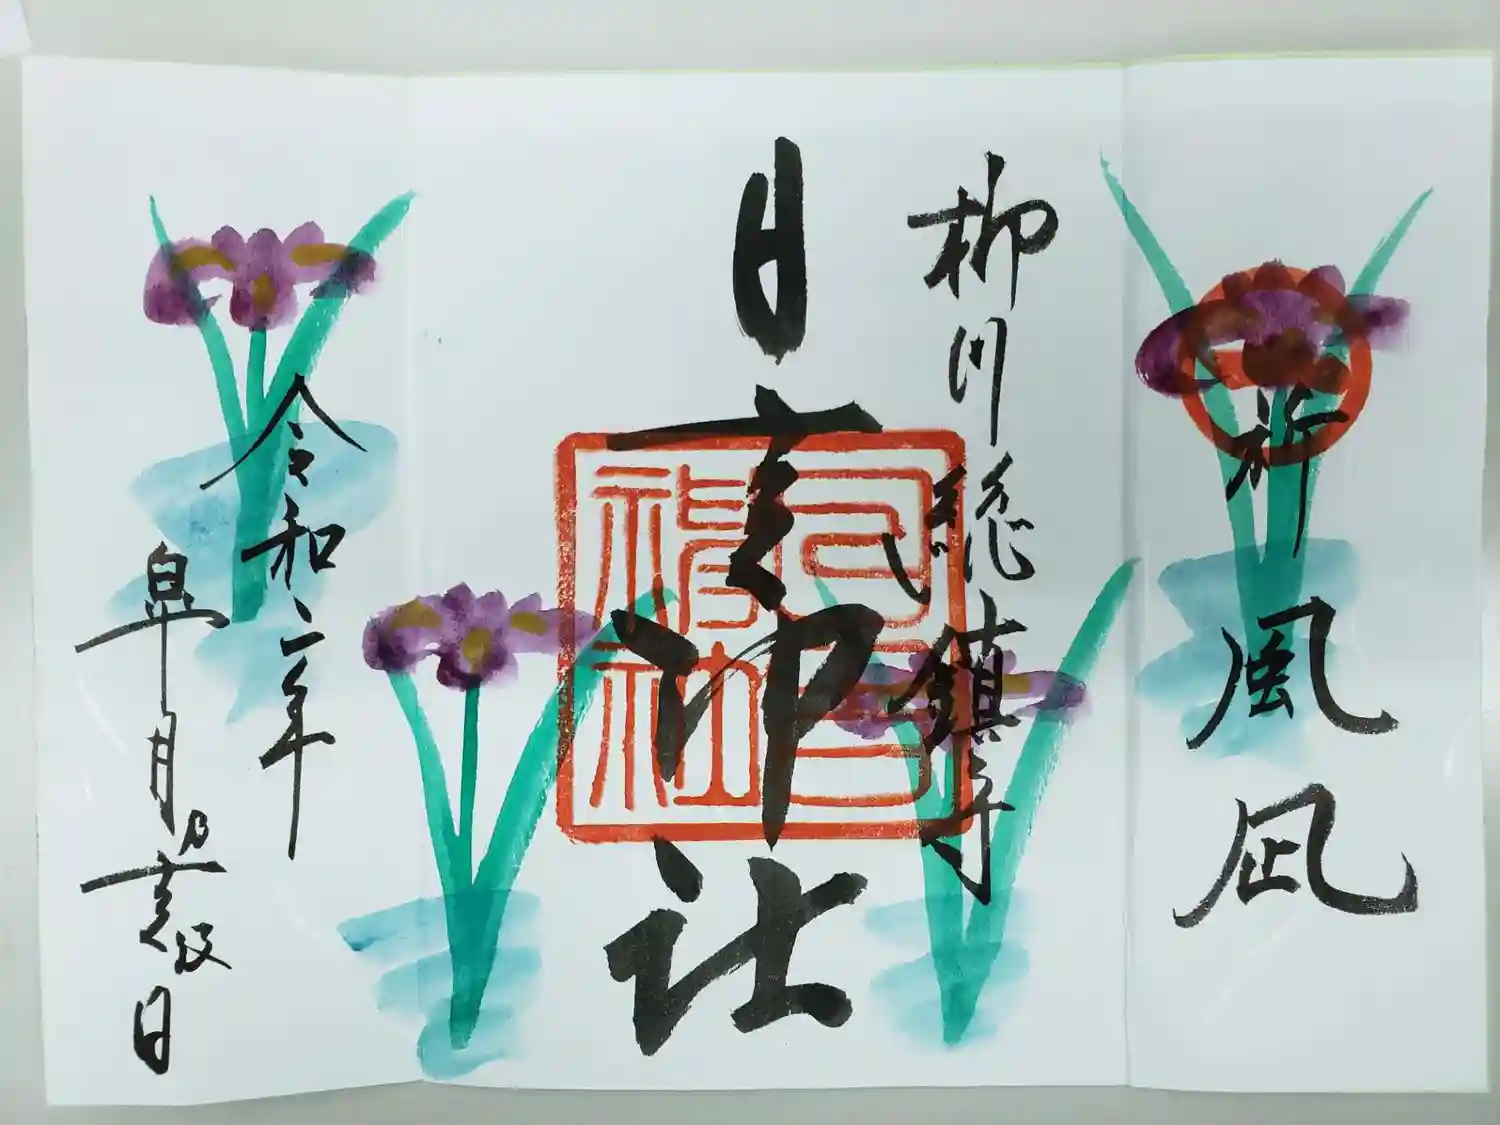 祈風凪
柳川総鎮守
日吉神社
日吉神社
令和二年
皐月日